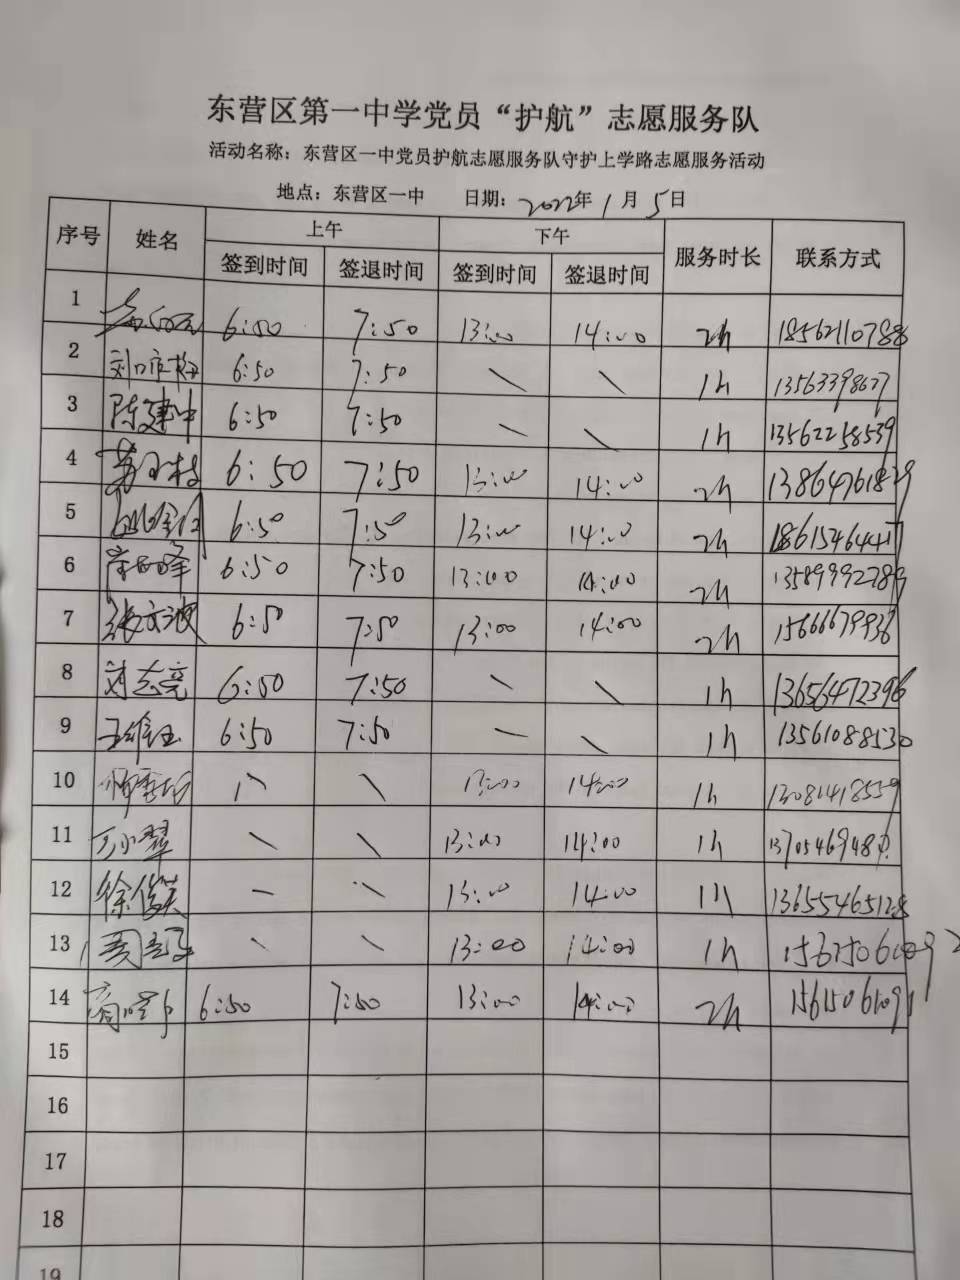 东营区第一中学党员“护航”志愿服务队
活动名称：东营区一中党员护航志愿服务队守护上学路志愿服务活动
地点：东营区一中 日期：2022年1月5日
序号 姓名 上午 下午 服务时长 联系方式
签到时间 签退时间 签到时间 签退时间
1 6:50 7:50 13:00 14:00 2h
2 6:50 7:50 \ \ 1h
3 陈建中 6:50 7:50 \ \ 1h 13562258539
4 6:50 7:50 13:00 14:00 2h
5 6:50 7:50 13:00 14:00 2h
6 6:50 7:50 13:00 14:00 2h
7 张文波 6:50 7:50 13:00 14:00 2h
8 刘志亮 6:50 7:50 \ \ 1h 13656472396
9 6:50 7:50 \ \ 1h 13561088530
10 \ \ 13:00 14:00 1h
11 \ \ 13:00 14:00 1h
12 徐俊英 \ \ 13:00 14:00 1h
13 \ \ 13:00 14:00 1h
14 6:50 7:50 13:00 14:00 2h
15
16
17
18
19